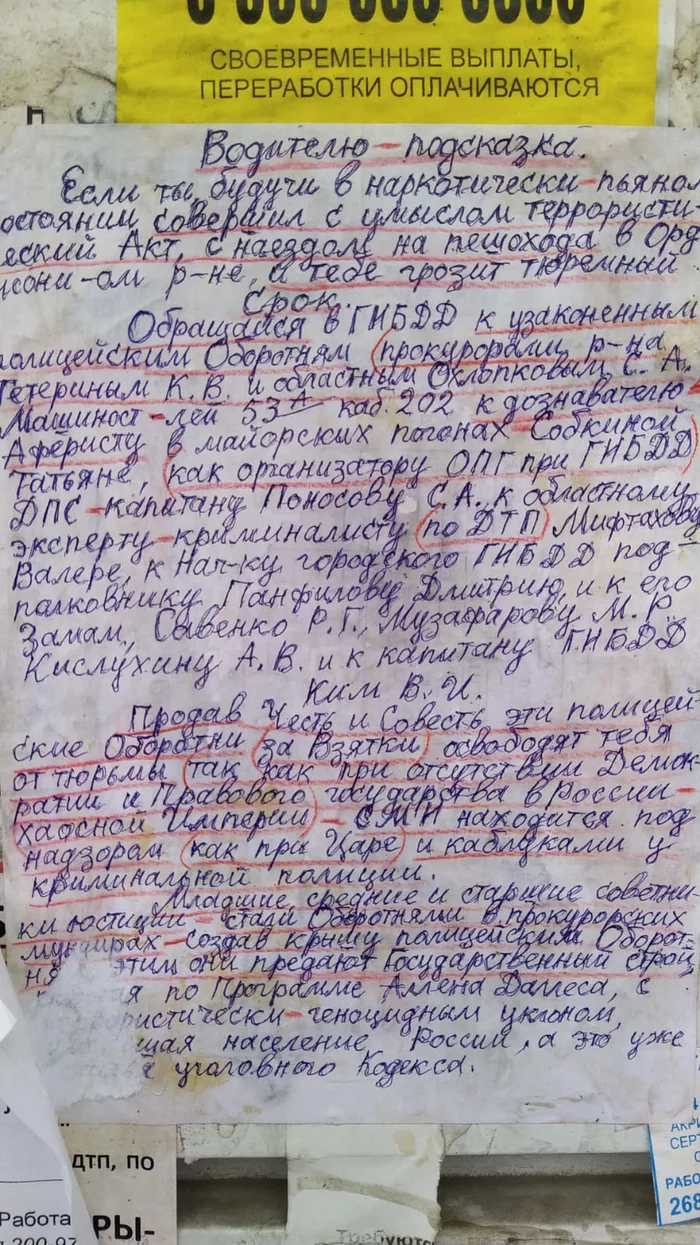 СВОЕВРЕМЕННЫЕ ВЫПЛАТЫ,
ПЕРЕРАБОТКИ ОПЛАЧИВАЮТСЯ
Водителю - подсказка.
Если ты, будучи в наркотически-пьяном
остоянии совершил с умыслом террористи-
еский Акт, с наездом на пешохода в Орд
они-ом р-не, а тебе грозит тюремный
срок.
Обращайся в ГИБДД к узаконенным
полицейским Оборотням (прокурорами р-на
Гетериным К.В. и областным Охлопковым С.А.
Машиност-лей 53А каб. 202 к дознавателю-
Аферисту в майорских погонах Собкиной
Татьяне, (как организатору ОПГ при ГИБДД)
ДПС-капитану Поносову С.А., к областному
эксперту-криминалисту (по ДТП) Мифтахову
Валере, к Нач-ку городского ГИБДД под-
полковнику Панфилову Дмитрию, и к его
Замам, Савенко Р.Г., Музафарову М.Р.
Кислухину А.В. и к капитану ГИБДД
Ким В.И.
Продав Честь и Совесть, эти полицей-
ские Оборотни (за Взятки) освободят тебя
от тюрьмы (так как при отсутствии Демок-
ратии и Правового государства в России-
хаосной Империи) - СМИ находится под
надзором (как при Царе) и каблуками у
криминальной полиции.
Младшие, средние и старшие советни-
ки юстиции - стали Оборотнями в прокурорских
мундирах - создав крышу полицейским Оборот-
ня этим они предают Государственный строй
я по Программе Аллена Даллеса, с
ристически-геноцидным уклоном,
щая население России, а это уже
уголовного Кодекса.
дтп, по
Работа
РЫ-
Требуютс
АКРИ
СЕРТ
РАБО
268